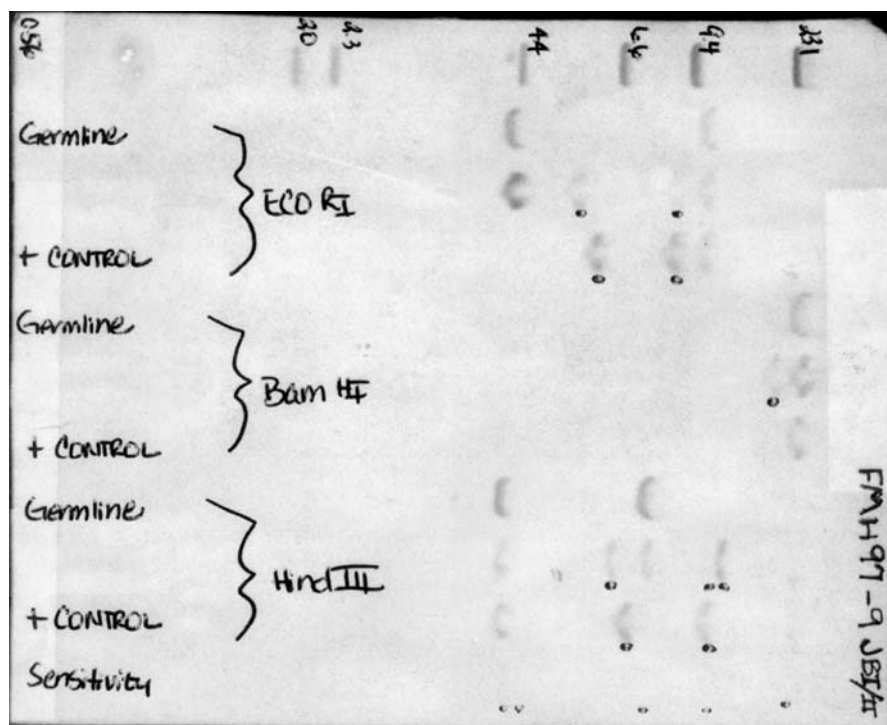 0.56 2.0 2.3 4.4 6.6 9.4 23.1
Germline
ECO RI
+ CONTROL
Germline
Bam HI
+ CONTROL
Germline
Hind III
+ CONTROL
Sensitivity
FMH97-9 JBI/II